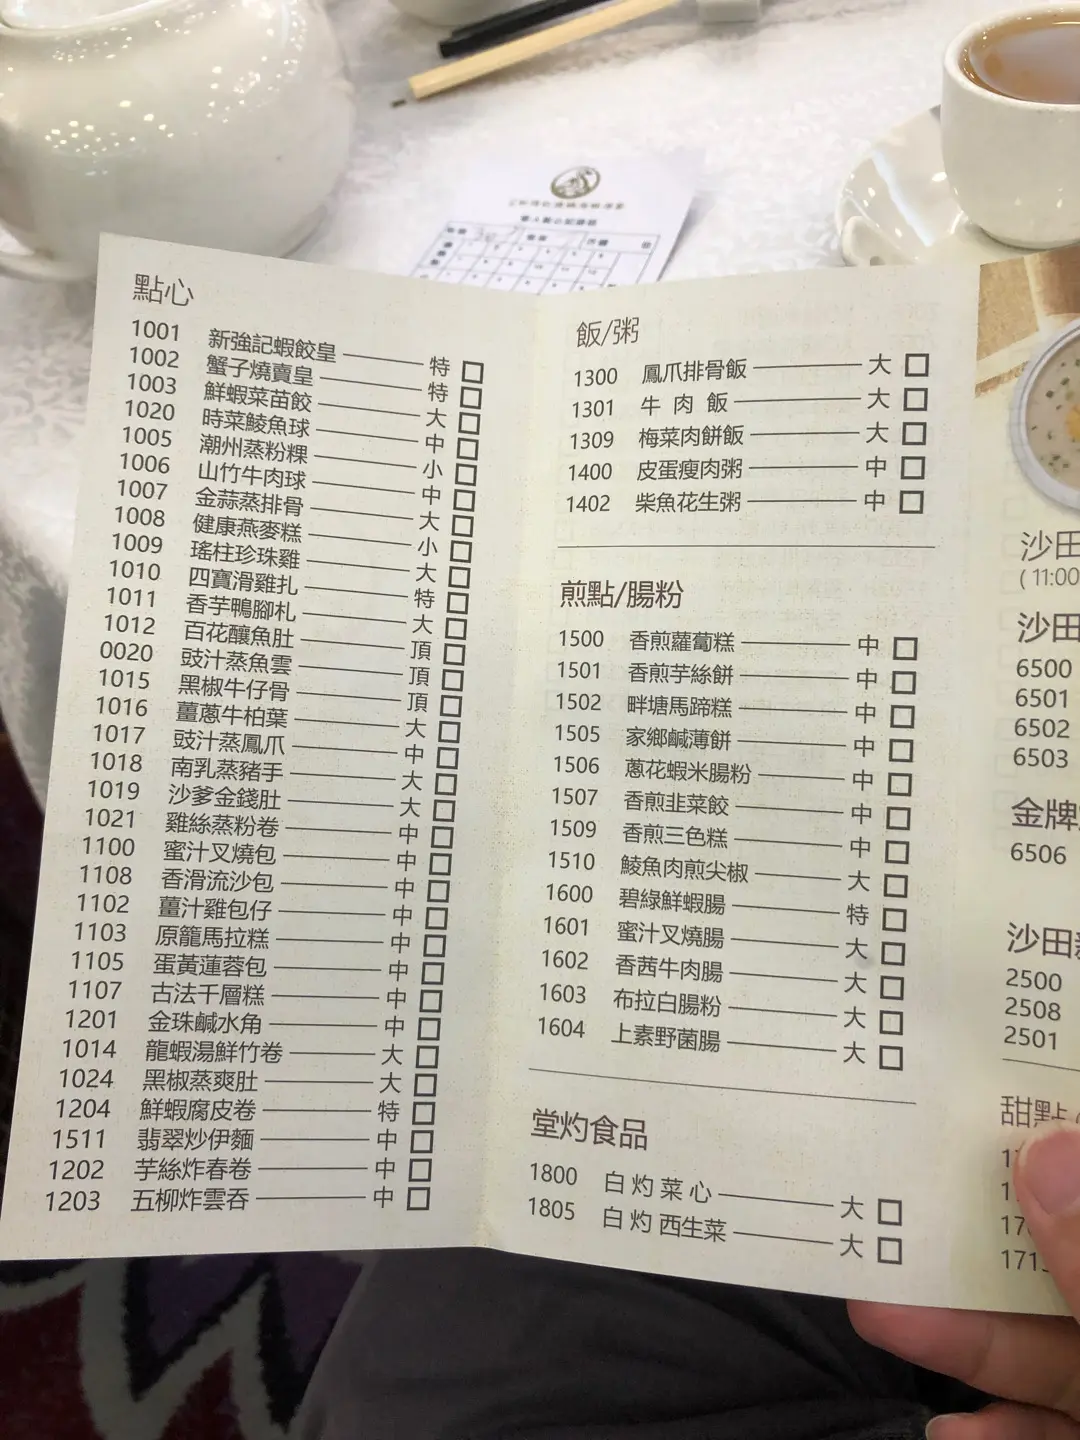 點心
1001 新強記蝦餃皇 特
1002 蟹子燒賣皇 特
1003 鮮蝦菜苗餃 大
1020 時菜鯪魚球 中
1005 潮州蒸粉粿 小
1006 山竹牛肉球 中
1007 金蒜蒸排骨 大
1008 健康燕麥糕 小
1009 瑤柱珍珠雞 大
1010 四寶滑雞扎 特
1011 香芋鴨腳札 大
1012 百花釀魚肚 頂
0020 豉汁蒸魚雲 頂
1015 黑椒牛仔骨 頂
1016 薑蔥牛柏葉 大
1017 豉汁蒸鳳爪 中
1018 南乳蒸豬手 大
1019 沙爹金錢肚 大
1021 雞絲蒸粉卷 中
1100 蜜汁叉燒包 中
1108 香滑流沙包 中
1102 薑汁雞包仔 中
1103 原籠馬拉糕 中
1105 蛋黃蓮蓉包 中
1107 古法千層糕 中
1201 金珠鹹水角 中
1014 龍蝦湯鮮竹卷 大
1024 黑椒蒸爽肚 大
1204 鮮蝦腐皮卷 特
1511 翡翠炒伊麵 中
1202 芋絲炸春卷 中
1203 五柳炸雲吞 中
飯/粥
1300 鳳爪排骨飯 大
1301 牛肉飯 大
1309 梅菜肉餅飯 大
1400 皮蛋瘦肉粥 中
1402 柴魚花生粥 中
煎點/腸粉
1500 香煎蘿蔔糕 中
1501 香煎芋絲餅 中
1502 畔塘馬蹄糕 中
1505 家鄉鹹薄餅 中
1506 蔥花蝦米腸粉 中
1507 香煎韭菜餃 中
1509 香煎三色糕 中
1510 鯪魚肉煎尖椒 大
1600 碧綠鮮蝦腸 特
1601 蜜汁叉燒腸 大
1602 香茜牛肉腸 大
1603 布拉白腸粉 大
1604 上素野菌腸 大
堂灼食品
1800 白灼菜心 大
1805 白灼西生菜 大
沙田
(11:00
沙田
6500
6501
6502
6503
金牌
6506
沙田
2500
2508
2501
甜點